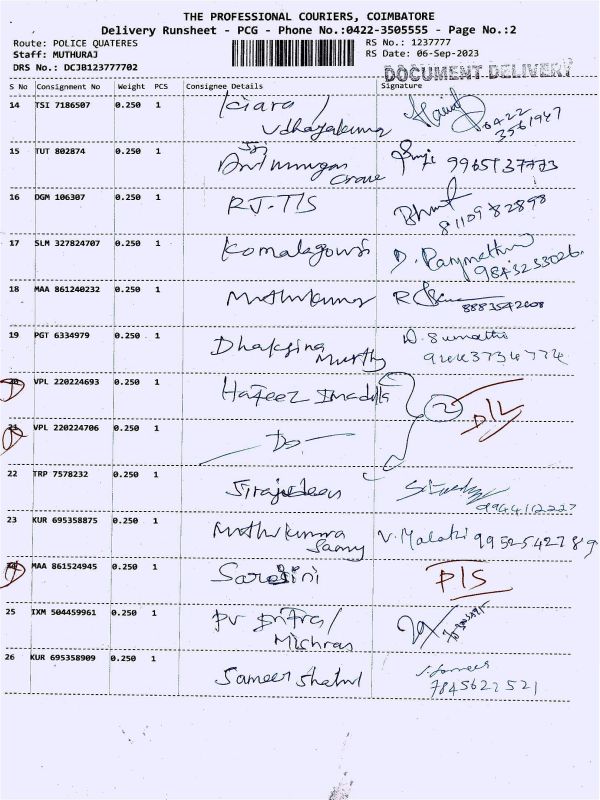 THE PROFESSIONAL COURIERS, COIMBATORE
Delivery Runsheet - PCG - Phone No.:0422-3505555 - Page No.:2
Route: POLICE QUATERES RS No.: 1237777
Staff: MUTHURAJ RS Date: 06-Sep-2023
DRS No.: DCJB123777702
DOCUMENT DELIVERY
S No Consignment No Weight PCS Consignee Details Signature
14 TSI 7186507 0.250 1 Kiara /
Udhayakumar 0422
3561947
15 TUT 802874 0.250 1 9965137773
16 DGM 106307 0.250 1 RJ-TIS
8110982898
17 SLM 327824707 0.250 1 Komalagowri D.
9843233026
18 MAA 861240232 0.250 1 Muthukumar R
8883542008
19 PGT 6334979 0.250 1 Dhaksina D. Sumathi
Murthy
20 VPL 220224693 0.250 1 Hafeez 2 D/L
21 VPL 220224706 0.250 1 -Do-
22 TRP 7578232 0.250 1 Sirajudeen
9944112227
23 KUR 695358875 0.250 1 Muthukumara V. Malathi 9952542789
Samy
24 MAA 861524945 0.250 1 Sarojini P/S
25 IXM 504459961 0.250 1 PV
26 KUR 695358909 0.250 1 Sameer
7845622521